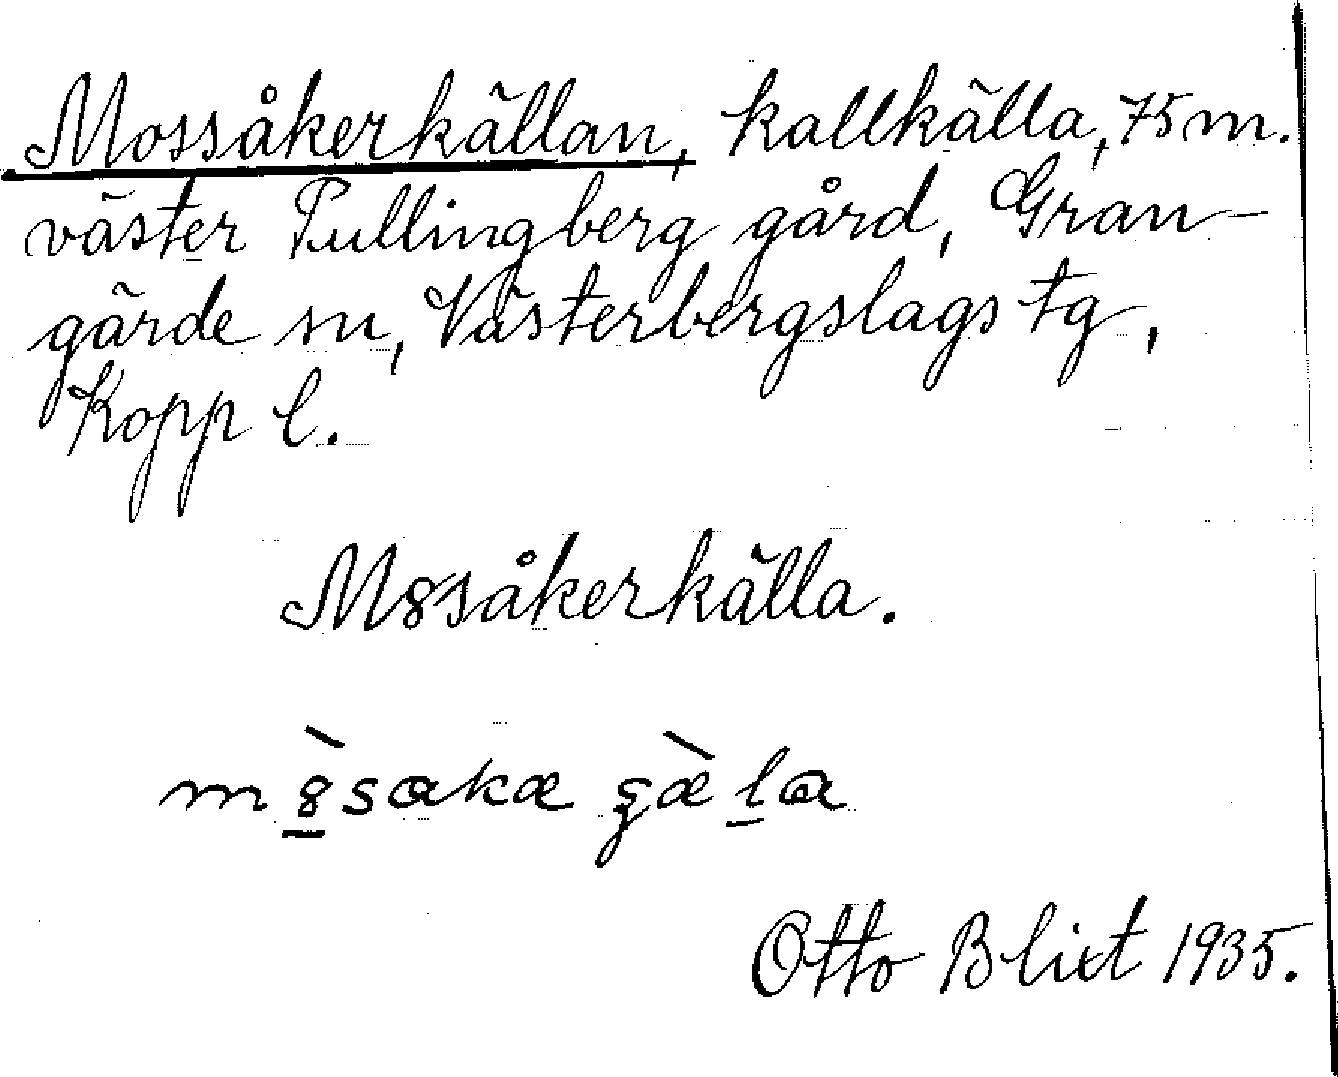 Mossåkerkällan, kallkälla, 75 m.
väster Pullingberg gård, Gran-
gärde sn, Västerbergslags tg,
Kopp l.
M8såkerkälla.
m8̀sakæ gæ̀la
Otto Blixt 1935.